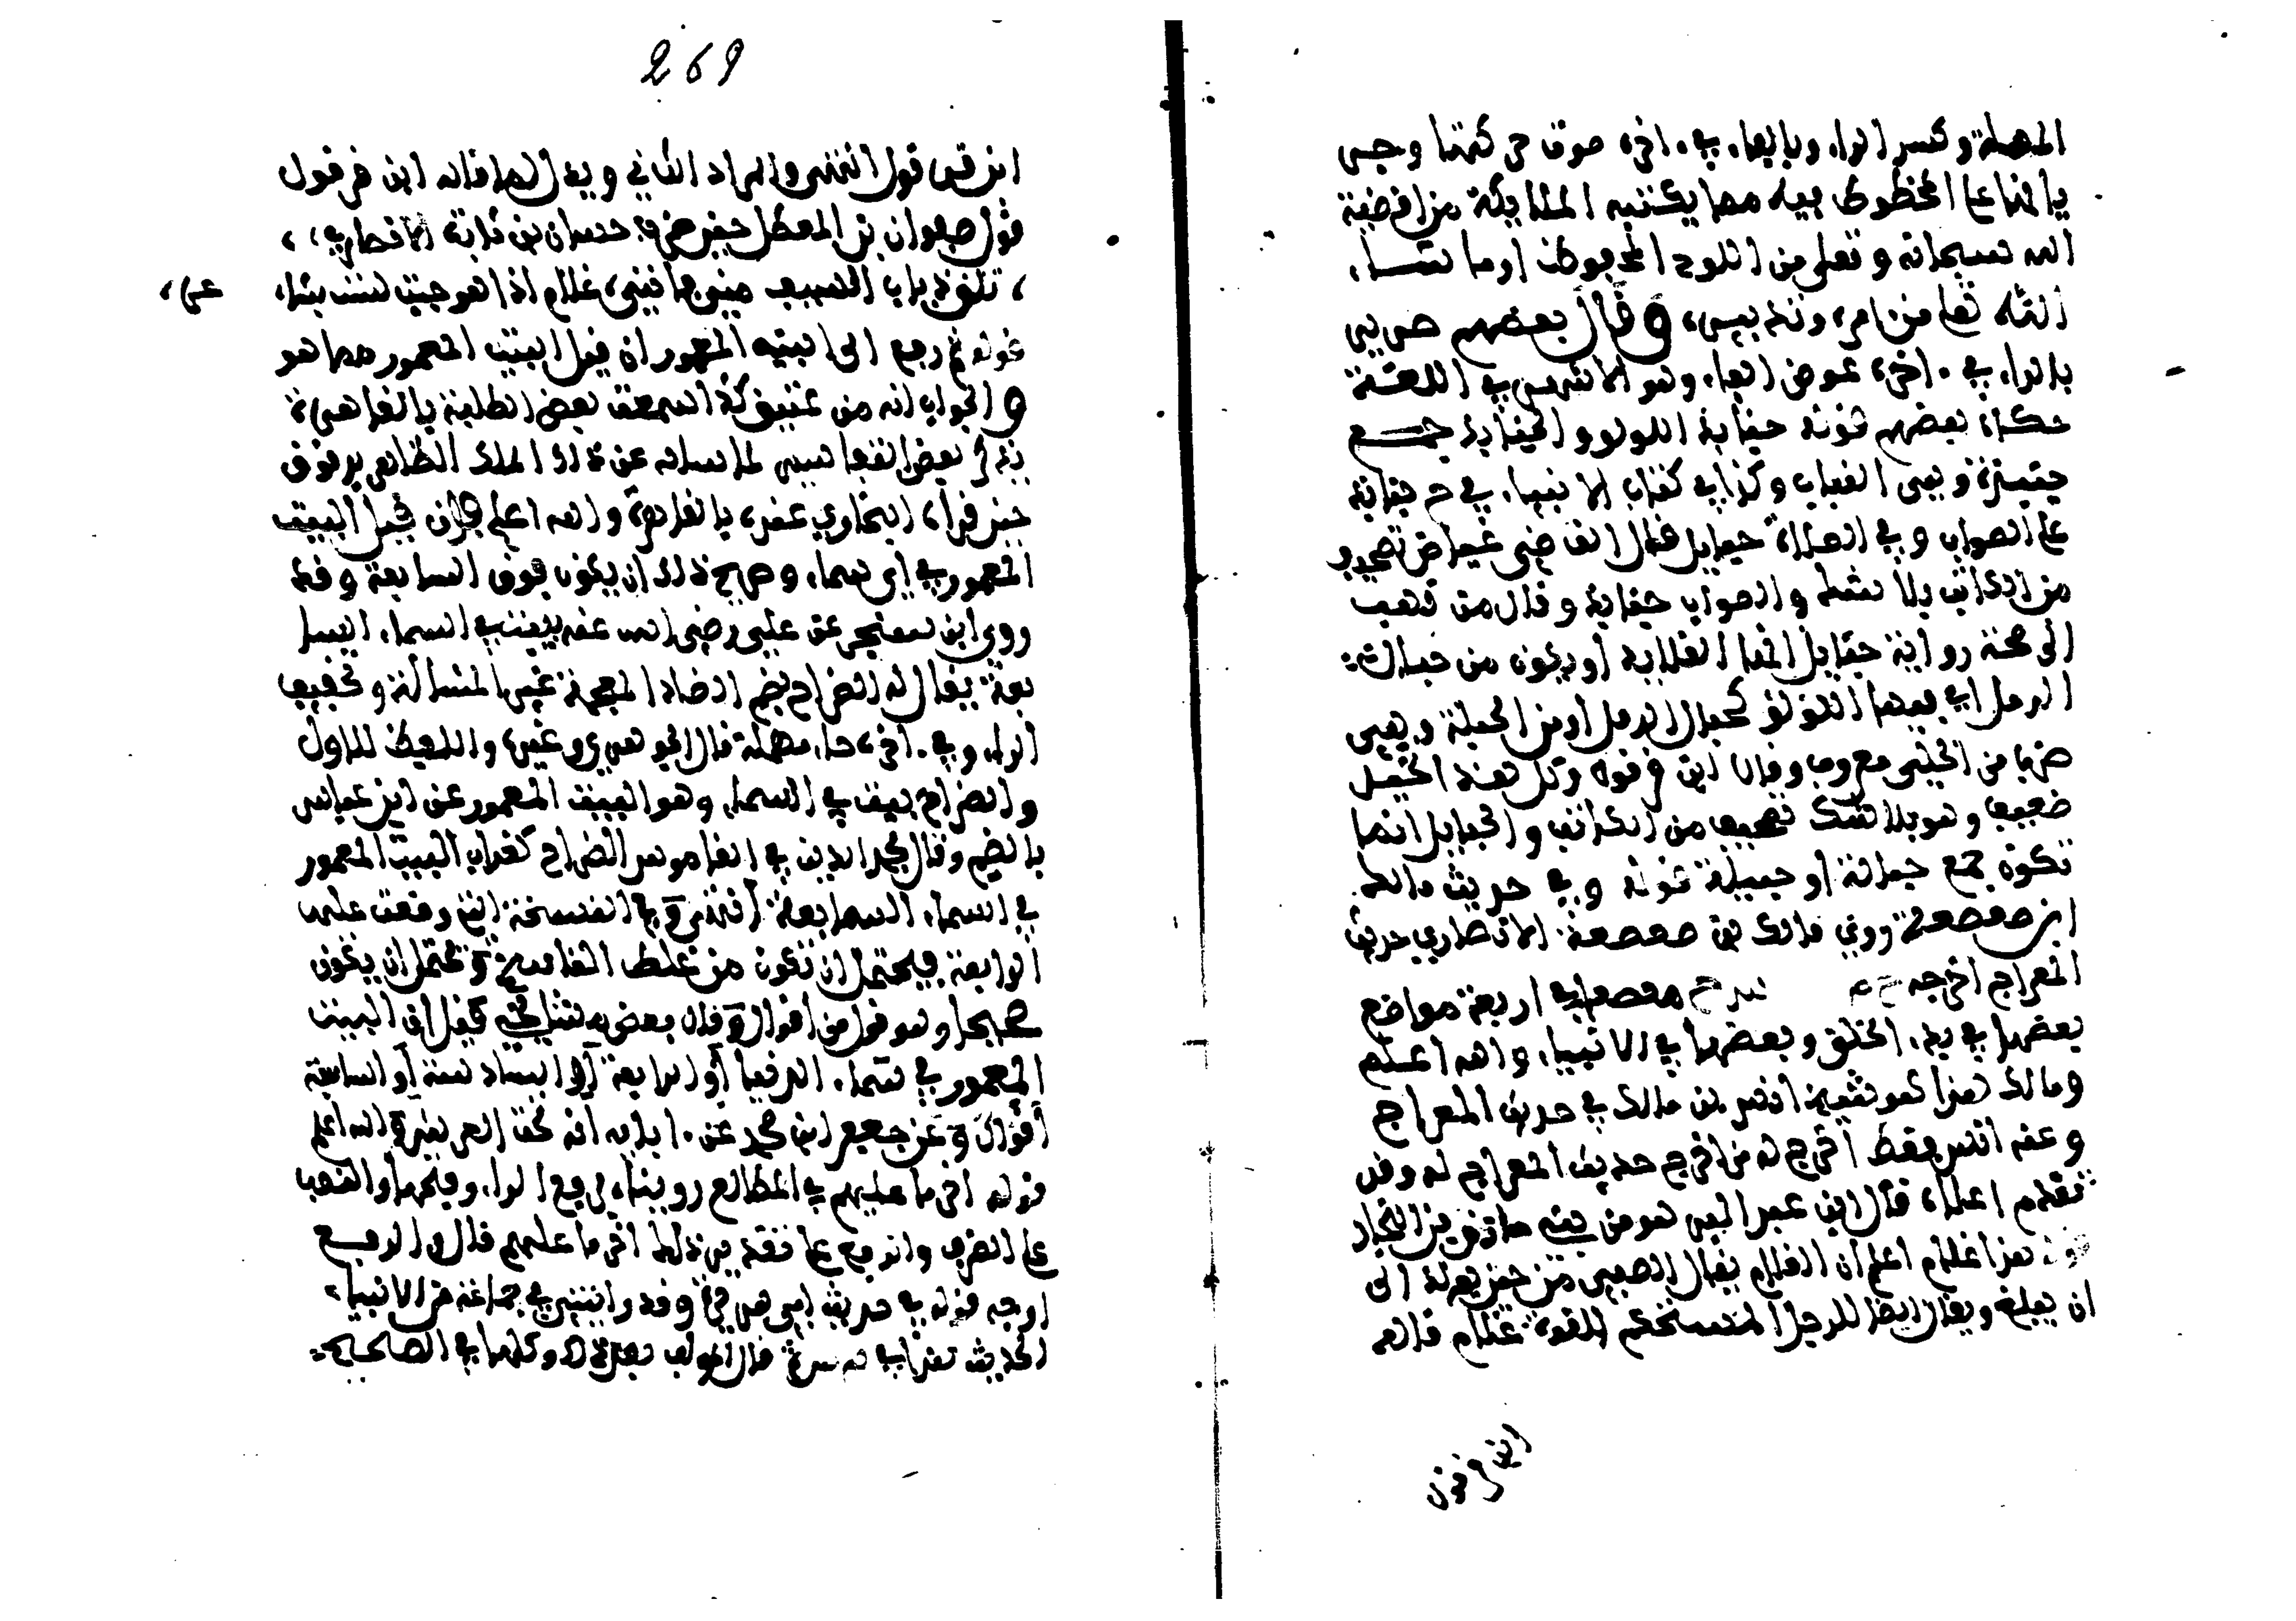 المهملة وكسر الراء وبالفاء في اخره صوت حركتها وجريها
بالقاء على المخطوط فيه مما يكتبه الملائكة من اقضية
الله سبحانه وتعلى من اللوح المحفوظ او ما شاء
الله تعا من امره وتدبيره وقال بعضهم صريرا
بالراء في اخره عوض الفاء وهو الاشهر في اللغة
حكاه بعضهم قوله جنابذ اللؤلؤ الجنابذ جمع
جنبذة وهي القباب وكذا في كتاب الانبياء في خ جنابذ
على الصواب وفي الصلاة حبايل قال القاضي عياض تصحيف
من الكاتب بلا شك والصواب جنابذ وقال من ذهب
الى صحة رواية حبايل انها القلايد او يكون من حبال
الرمل اي فيها اللؤلؤ كحبال الرمل او من الحبلة وهي
ضرب من الحلي معروف وقال ابن قرقول وكل هذا التخيل
ضعيف وهو بلا شك تصحيف من الكاتب والحبايل انما
تكون جمع حبالة او حبيلة قوله وفي حديث مالك
ابن صعصعة روى مالك بن صعصعة الانصاري حديث
المعراج اخرجه خ م اربعة مواضع
بعضها في بدء الخلق وبعضها في الانبياء والله اعلم
ومالك هذا هو شيخ انس بن مالك في حديث المعراج
وعنه انس فقط اخرج له من اخرج حديث المعراج له وقد
تقدم اعلاه قال ابن عبد البر هو من بني مازن بن النجار
قوله هذا غلام اعلم ان الغلام يقال للصبي من حين يولد الى
ان يبلغ ويقال ايضا للرجل المستحكم القوة غلام قاله
ابن قرقول
269
ابن قرقول انتهى والمراد الثاني ويدل لما قاله ابن قرقول
قول صفوان بن المعطل حين ضرب حسان بن ثابت الانصاري
تلق ذباب السيف مني فانني غلام اذا هوجيت لست بشاعر
قوله ثم رفع الى البيت المعمور ان قيل البيت المعمور مما هو
والجواب انه من عقيق كذا سمعت بعض الطلبة بالقاهرة
يذكر بعض الفقها لما ساله عن ذلك الملك الظاهر برقوق
حين قراءة البخاري عنده بالقاهرة والله اعلم فان قيل البيت
المعمور في اي سماء وصحيح ذلك ان يكون فوق السابعة وقد
روى ابن سنجر عن علي رضي الله عنه بيت في السماء السا
بعة يقال له الضراح بضم الضاد المعجمة غير المشالة وتخفيف
الراء وفي اخره حاء مهملة قال الجوهري وغيره واللفظ للاول
والضراح بيت في السماء وهو البيت المعمور عن ابن عباس
بالضم وقال مجد الدين في القاموس الضراح كغراب البيت المعمور
في السماء السابعة انتهى وفي النسخة التي وقفت عليها
الرابعة فيحتمل ان تكون من غلط الناسخ ويحتمل ان يكون
صحيحا وهو قول من اقوال وقال بعض مشايخي قيل ان البيت
المعمور في سماء الدنيا او الرابعة او السادسة او السابعة
اقوال وعن جعفر ابن محمد عن ابايه انه تحت العرش والله اعلم
قوله اخر ما عليهم في المطالع رويناه برفع الراء وفتحها والنصب
على الظرف والرفع على تقدير ذلك اخر ما عليهم قال والرفع
اوجه قوله في حديث ابي هريرة وقد رايتني في جماعة من الانبياء
الحديث قال المولف بعد ذلك وكلها في الصحيح